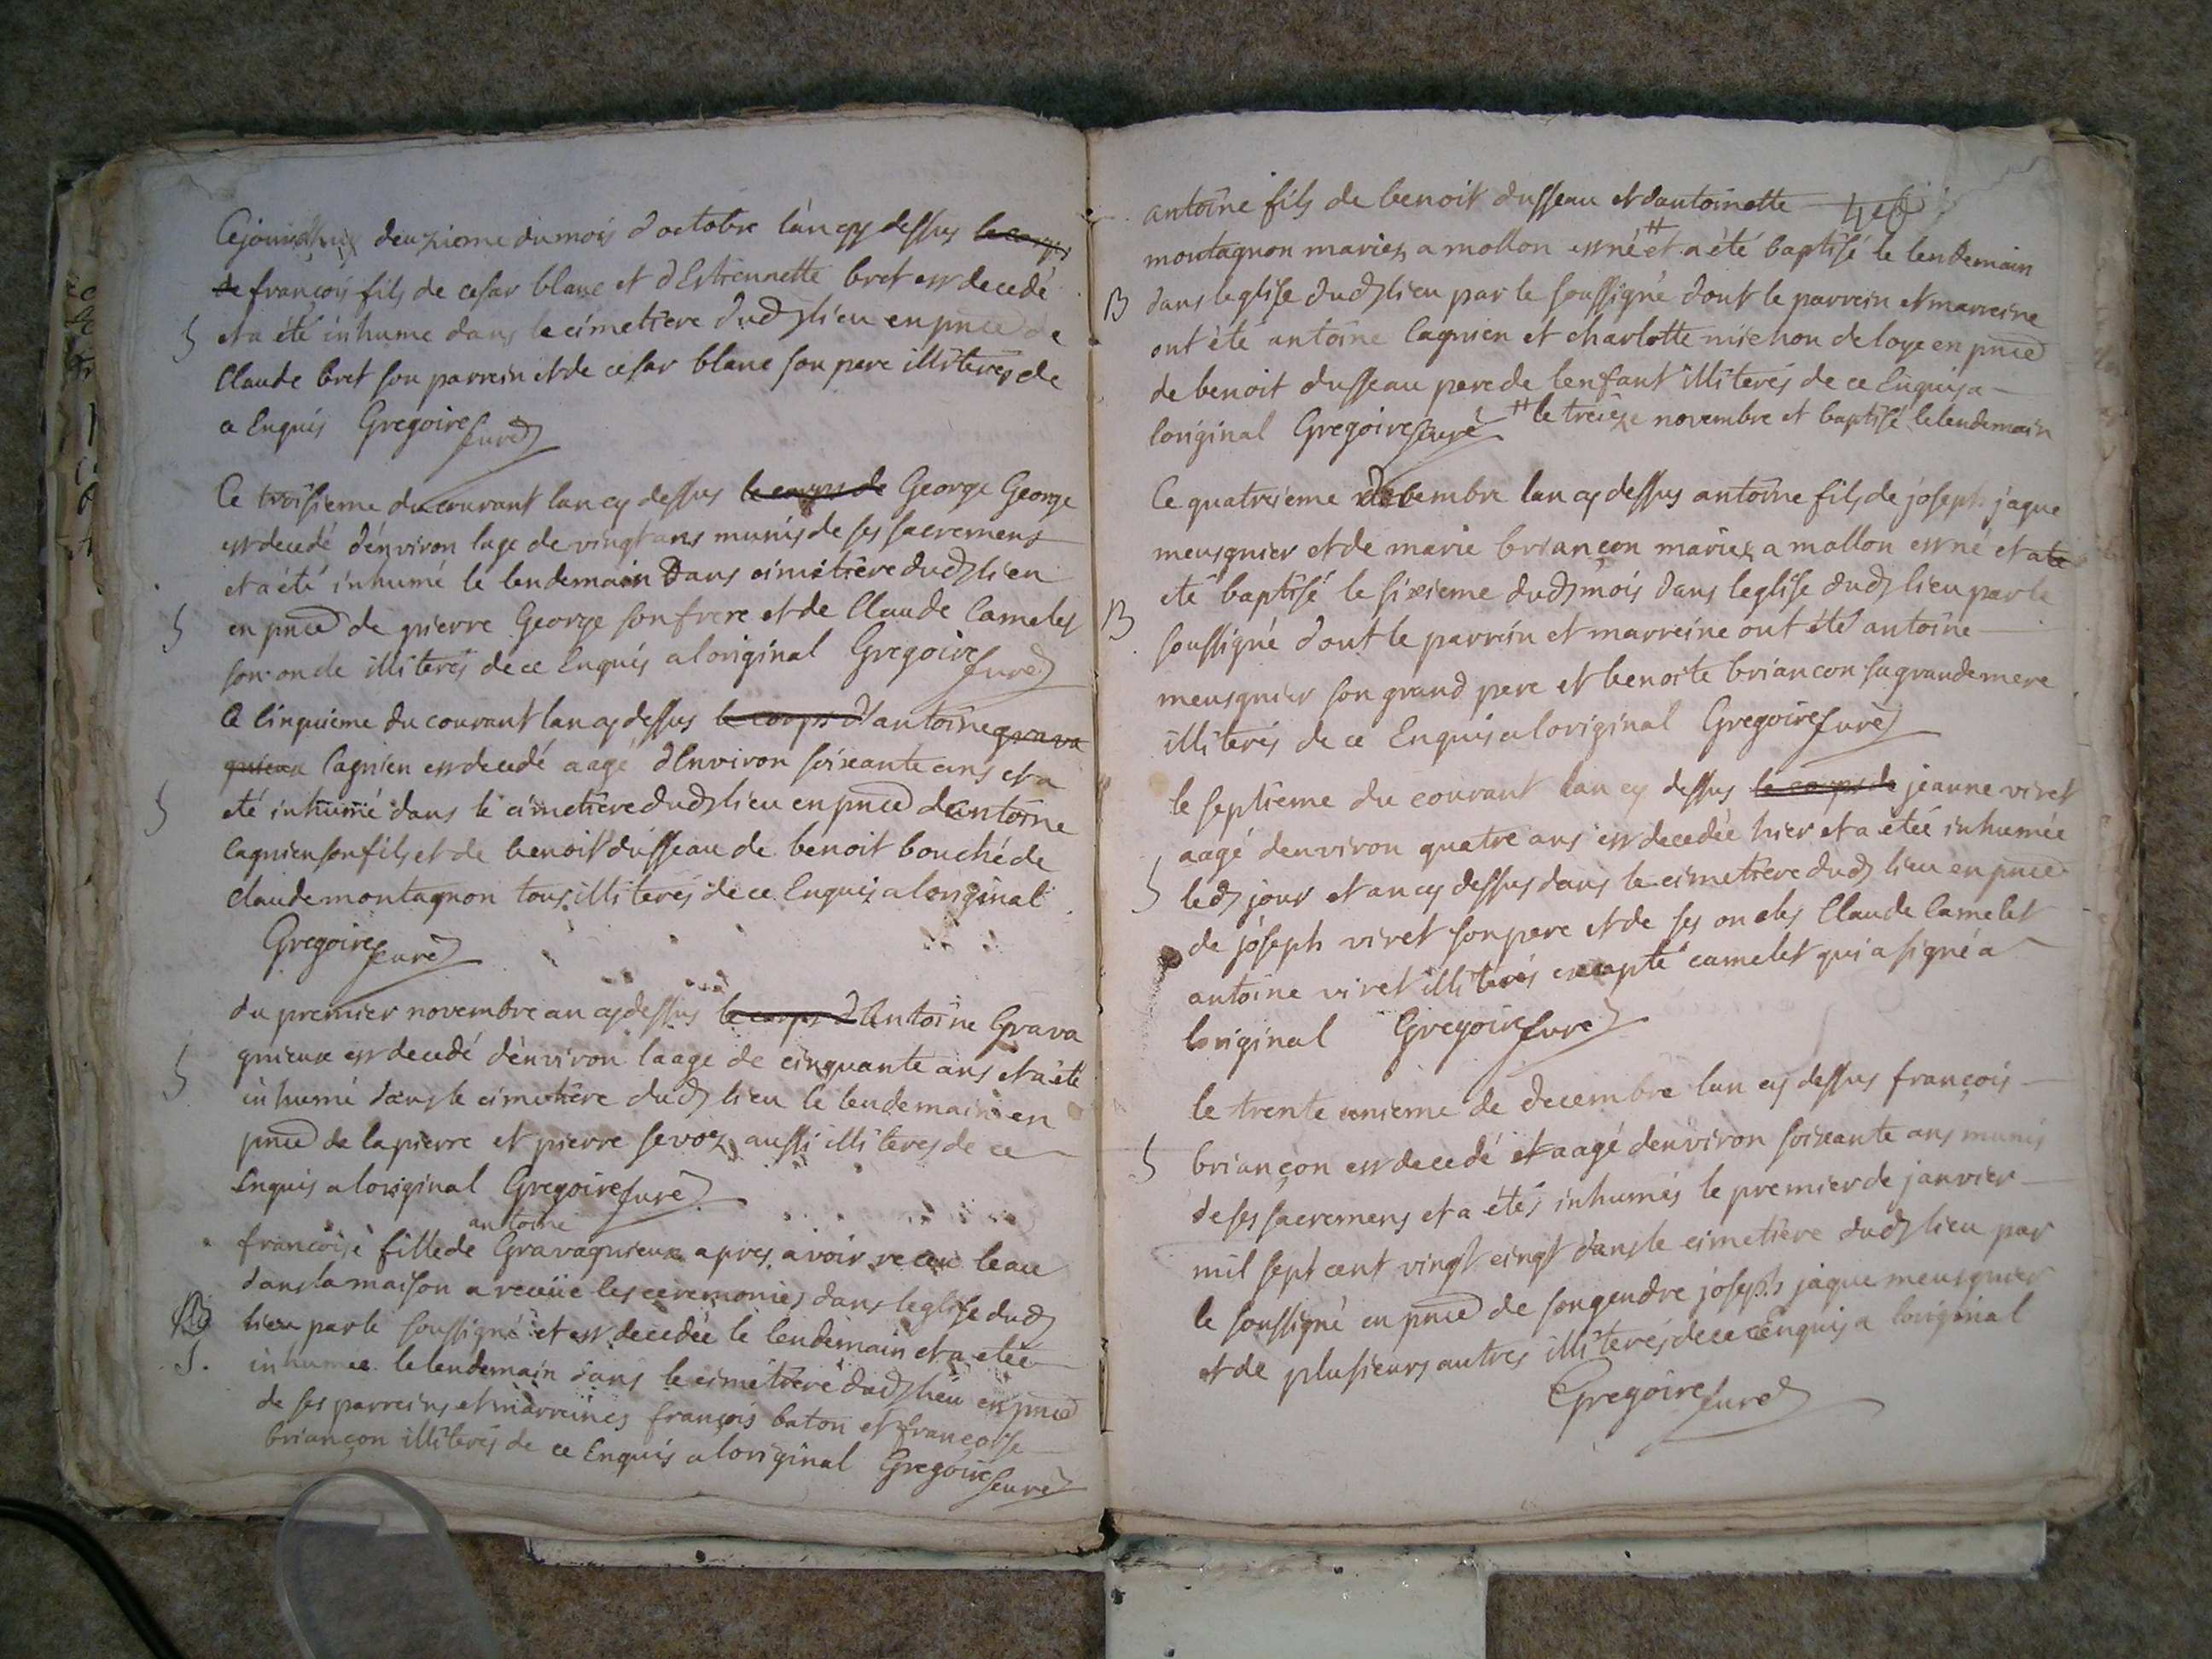 deuxieme du mois d'octobre l'an cy dessus le corps
de françois fils de cesar blanc et d'Estiennette bret est decedé
S et a été inhume dans le cimetiere dud lieu en pnce de
Claude bret son parrein et de cesar blanc son pere illiterés de
ce Enquis Gregoire Curé
Ce troisieme du courant lan cy dessus le corps de George George
est decedé d'environ lage de vingt ans munis de ses sacremens
et a été inhumé le lendemain Dans cimetiere dud lieu
S en pnce de pierre George son frere et de Claude Camelet
son oncle illiterés de ce Enquis a loriginal Gregoire Curé
Ce cinquieme du courant lan cy dessus le corps d'antoine grava
gnieux Cagnien est decedé aagé d'Environ soixante ans et a
S eté inhumé dans le cimetiere dud lieu en pnce dantoine
Cagnien son fils et de benoit dusseau de benoit bouché de
Claude montagnon tous illiterés de ce Enquis a loriginal
Gregoire Curé
du premier novembre an cy dessus le corps d'Antoine Grava
S gnieux est decedé d'environ laage de cinquante ans et a été
inhumé dans le cimetière dud lieu le lendemain en
pnce de lapierre et pierre sevoz aussi illiteres de ce
Enquis a loriginal Gregoire Curé
antoine
francoise fille de Gravagnieux apres avoir receu leau
dans la maison a receüe les ceremonies dans leglise dud
B lieu par le soussigné et est decedée le lendemain et a etée
S. inhumee le lendemain dans le cimetiere dud lieu en pnce
de ses parreins et marreines françois baton et françoise
briançon illiterés de ce Enquis a loriginal Gregoire Curé
antoine fils de benoit dusseau et dantoinette
montagnon mariez a mollon est né # et a été baptisé le lendemain
B dans leglise dud lieu par le soussigné dont le parrein et marreine
ont été antoine Cagnien et charlotte michon de loye en pnce
de benoit dusseau pere de lenfant illiterés de ce Enquis a
loriginal Gregoire Curé # le treize novembre et baptisé le lendemain
Ce quatrieme decembre lan cy dessus antoine fils de joseph jaque
meusgnier et de marie briançon mariez a mollon est né et a eté
eté baptisé le sixieme dud mois dans leglise dud lieu par le
B soussigné dont le parrein et marreine ont été antoine
meusgnier son grand pere et benoite briancon sa grande mere
illiterés de ce Enquis a loriginal Gregoire Curé
le septieme du courant lan cy dessus le corps de jeanne viret
aagé denviron quatre ans est decedée hier et a etée inhumée
S led jour et an cy dessus dans le cimetiere dud lieu en pnce
de joseph viret son pere et de ses oncles Claude Camelet
antoine viret illiterés excepté camelet qui a signé a
loriginal Gregoire Curé
le trente unieme de decembre lan cy dessus françois
S briançon est decedé et aagé denviron soixante ans munis
de ses sacremens et a étés inhumés le premier de janvier
mil sept cent vingt cinqt dans le cimetière dud lieu par
le soussigné en pnce de son gendre joseph jaque meusgnier
et de plusieurs autres illiterés de ce Enquis a loriginal
Gregoire Curé